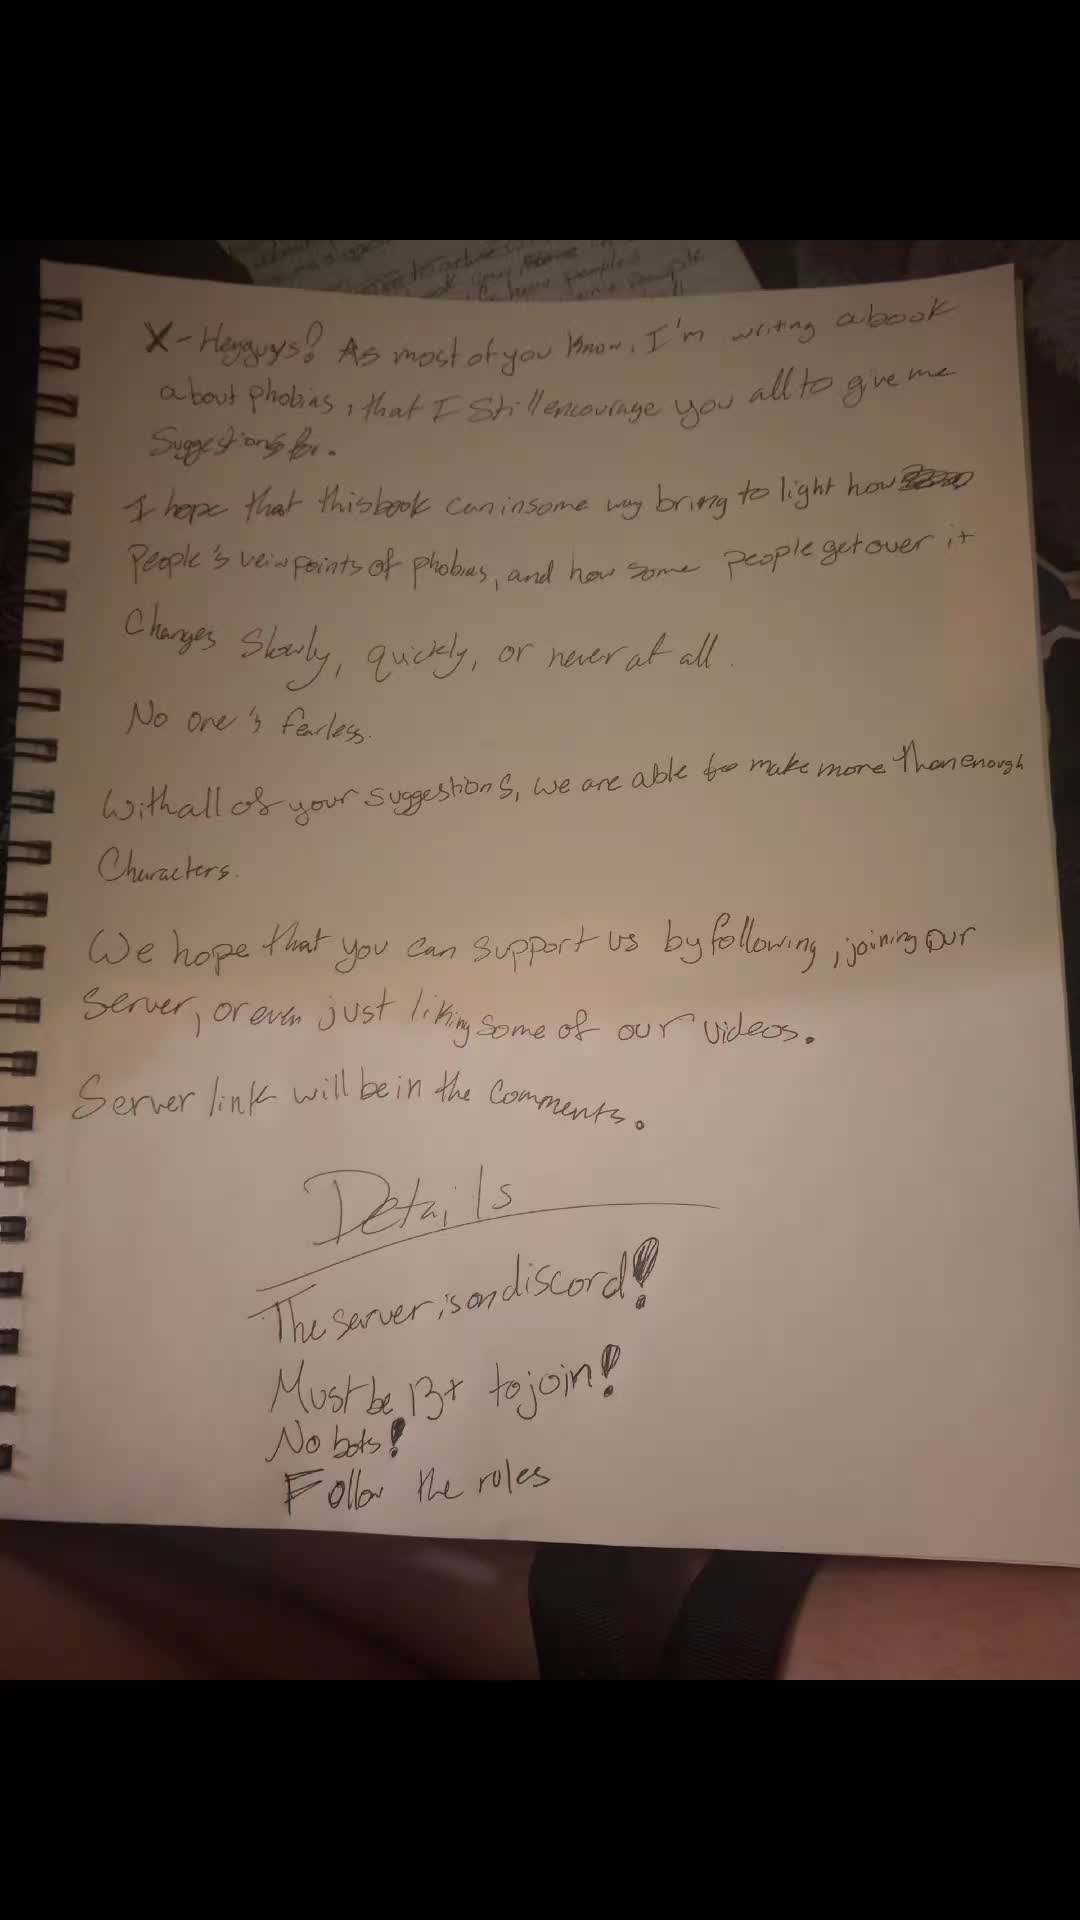 X- Heyguys! As most of you know, I'm writing a book
about phobias, that I still encourage you all to give me
Suggestions for.
I hope that this book can in some way bring to light how
People's veiwpoints of phobias, and how some people get over it
Changes Slowly, quickly, or never at all.
No one's fearless.
With all of your suggestions, we are able to make more than enough
Characters.
We hope that you can support us by following, joining our
Server, or even just liking some of our videos.
Server link will be in the comments.
Details
The server is on discord!
Must be 13+ to join!
No bots!
Follow the rules